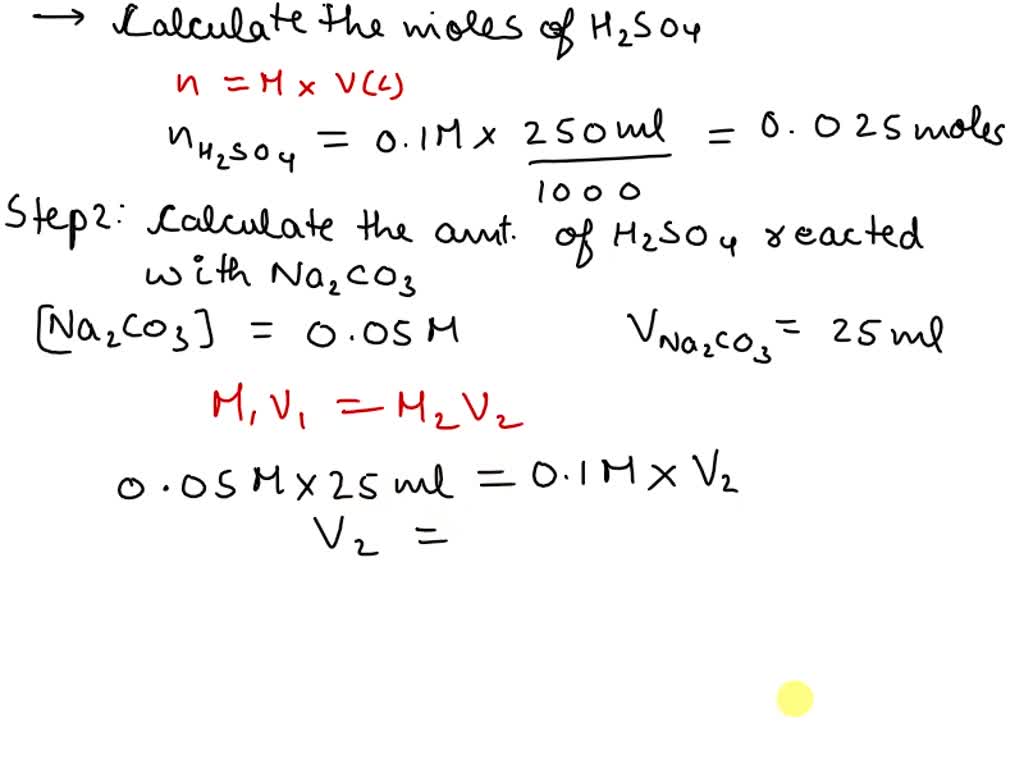 → Calculate the moles of H₂SO₄
n = M × V(L)
n_H₂SO₄ = 0.1M × 250ml/1000 = 0.025 moles
Step 2: Calculate the amt. of H₂SO₄ reacted
with Na₂CO₃
[Na₂CO₃] = 0.05M V_Na₂CO₃ = 25 ml
M₁V₁ = M₂V₂
0.05M × 25 ml = 0.1M × V₂
V₂ =